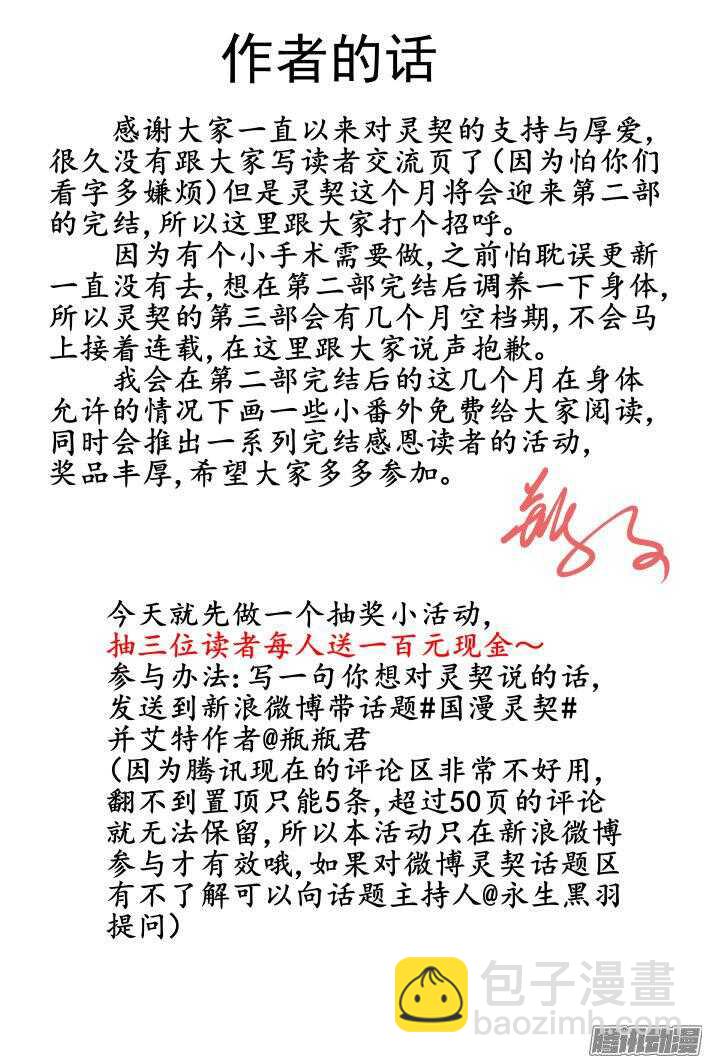 作者的话
感谢大家一直以来对灵契的支持与厚爱,
很久没有跟大家写读者交流页了(因为怕你们
看字多嫌烦)但是灵契这个月将会迎来第二部
的完结,所以这里跟大家打个招呼。
因为有个小手术需要做,之前怕耽误更新
一直没有去,想在第二部完结后调养一下身体,
所以灵契的第三部会有几个月空档期,不会马
上接着连载,在这里跟大家说声抱歉。
我会在第二部完结后的这几个月在身体
允许的情况下画一些小番外免费给大家阅读,
同时会推出一系列完结感恩读者的活动,
奖品丰厚,希望大家多多参加。
今天就先做一个抽奖小活动,
抽三位读者每人送一百元现金～
参与办法:写一句你想对灵契说的话,
发送到新浪微博带话题#国漫灵契#
并艾特作者@瓶瓶君
(因为腾讯现在的评论区非常不好用,
翻不到置顶只能5条,超过50页的评论
就无法保留,所以本活动只在新浪微博
参与才有效哦,如果对微博灵契话题区
有不了解可以向话题主持人@永生黑羽
提问)
包子漫畫
baozimh.com
腾讯动漫